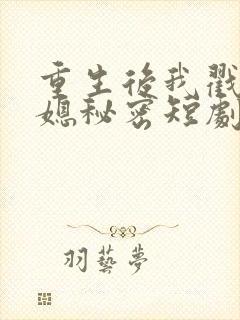 重生後我戳
媳秘密短劇
羽藝夢